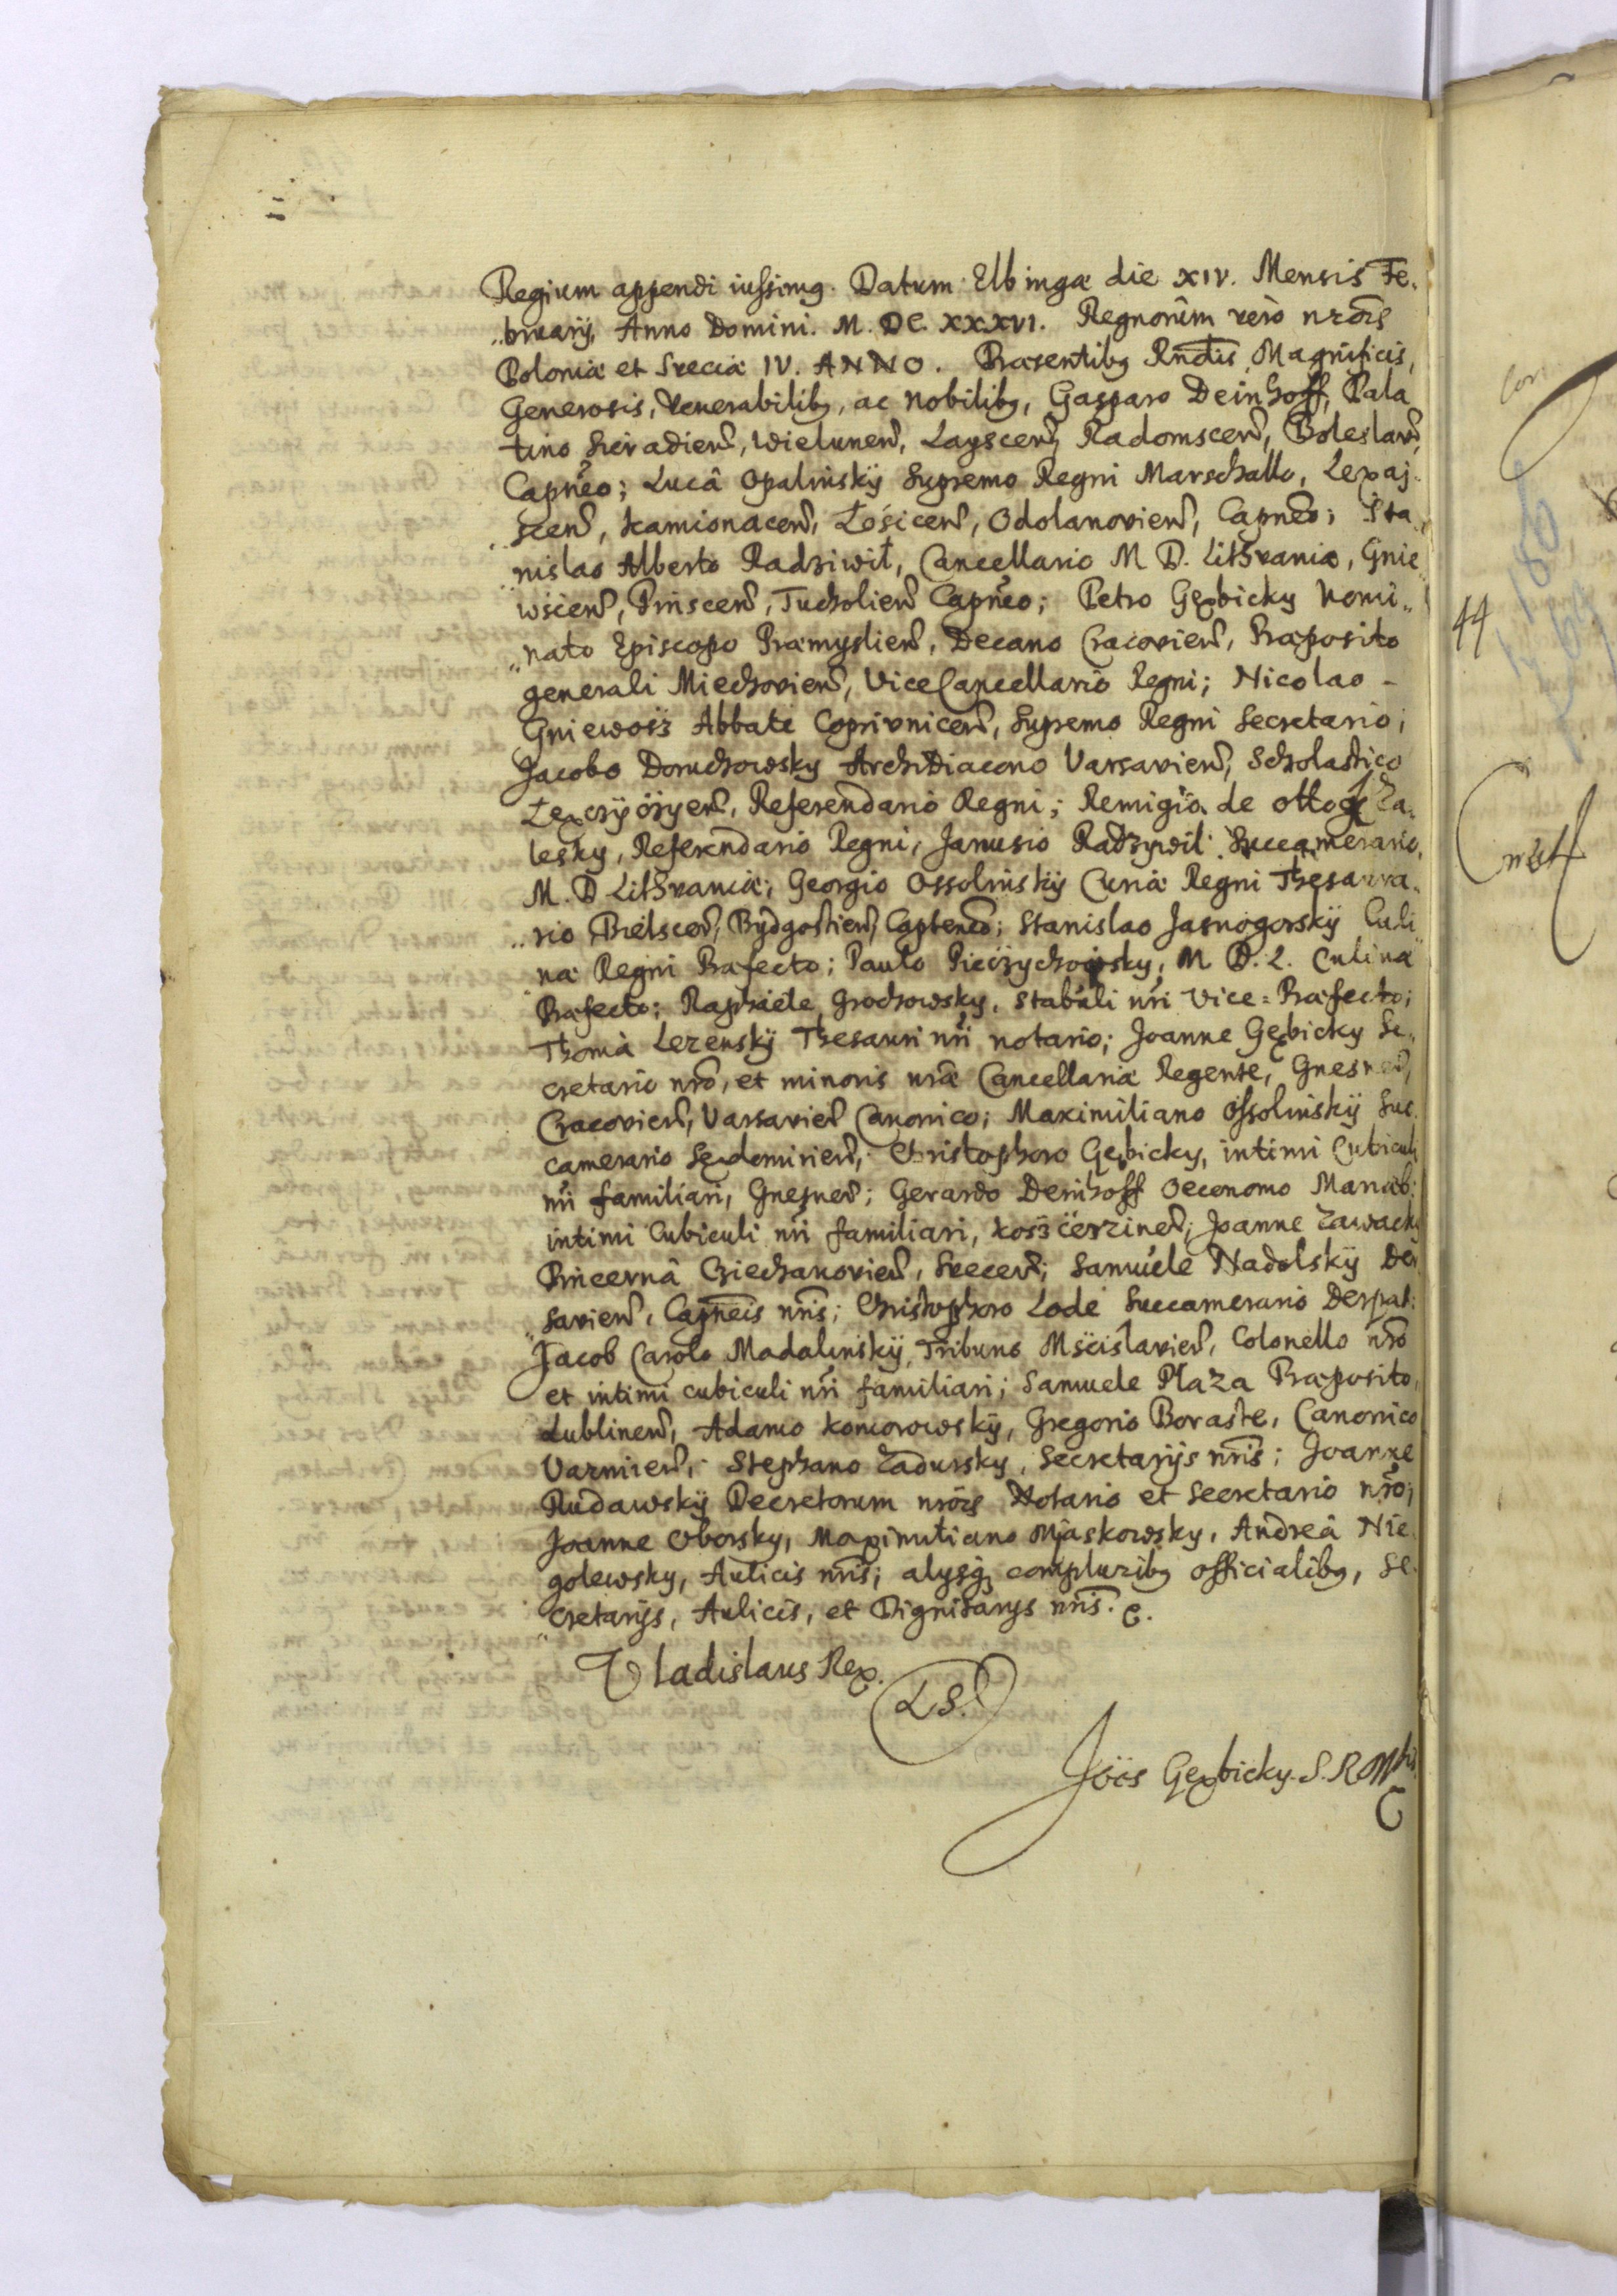 Regium appendi iussimg. Datum Elbingæ die XIV. Mensis Fe.
bruarij, Anno Domini. M. DC. XXXVI. Regnorum vero nrõrũ
Poloniæ et Sveciæ IV. ANNO. Præsentibg Rndis, Magnificis,
Generosis, Venerabilibg, ac Nobilibg, Gasparo Deinhoff, Pala
tino Siradien, Wielunen, Layscen, Radomscen, Boleslavien
Capñeo; Lucâ Opalinsky Supremo Regni Marschallo, Lexaj
scen, Kamionacen, Łośicen, Odolanovien, Capñeo; Sta
nislao Alberto Radziwił, Cancellario M D. Lithvaniæ, Gnie
wścien, Pinscen, Tucholien Capñeo; Petro Gębicky Nomi
nato Episcopo Præmyslien, Decano Cracovien, Præposito
generali Miechovien, ViceCancellario Regni; Nicolao -
Gniewosz Abbate Coprivnicen, Supremo Regni Secretario;
Jacobo Doruchowsky ArchiDiacono Varsavien, Scholastico
Referendario Regni; Remigio de Ottok Za
lesky, Referendario Regni, Janusio Radzywil Succamerario,
M. D Lithvaniæ; Georgio Ossolinsky Curiæ Regni Thesaura
rio Bielscen, Bydgostien, Capteneo; Stanislao Jasnogorsky Culi
næ Regni Præfecto; Paulo M D. L. Culinæ
Præfecto; Raphaele Grochowsky, Stabuli nri Vice=Præfecto;
Thoma Lezensky Thesauri nri notario; Joanne Gębicky Se
cretario nrõ, et minoris nræ Cancellariæ Regente, Gnesnen,
Cracovien, Varsavien Canonico; Maximiliano Ossolinsky Suc
camerario Sędomirien, Christophoro Gębicky, intimi Cubiculi
nri familiari, Gnesnen; Gerardo Denhoff Oeconomo Mariæb:
intimi Cubiculi nri familiari, Joanne Zawacky
Pincernâ Cziechanovien, Svecen; Samuele Nadolsky
savien, Capñeis nris; Christophoro Lode Succamerario Derpat:
Jacob Carolo Madalinsky, Tribuno Mścislavien, Colonello nrõ
et intimi cubiculi nri familiari; Samuele Plaza Præposito,
Lublinen, Adamo Komorowsky, Gregorio Boraste, Canonico
Varmien, Stephano Zadursky, Secretarijs nris; Joanne
Rudawsky Decretorum nrõrũ Notario et Secretario nrõ;
Joanne Oborsky, Maximiliano Mjaskowsky, Andreâ Nie
golewsky, Aulicis nris; alysq compluribg officialibg, Se
cretarijs, Aulicis, et Dignitarijs nris.
Vladislaus Rex.
L.S.
Joes Gębicky. S. R Mtis
44